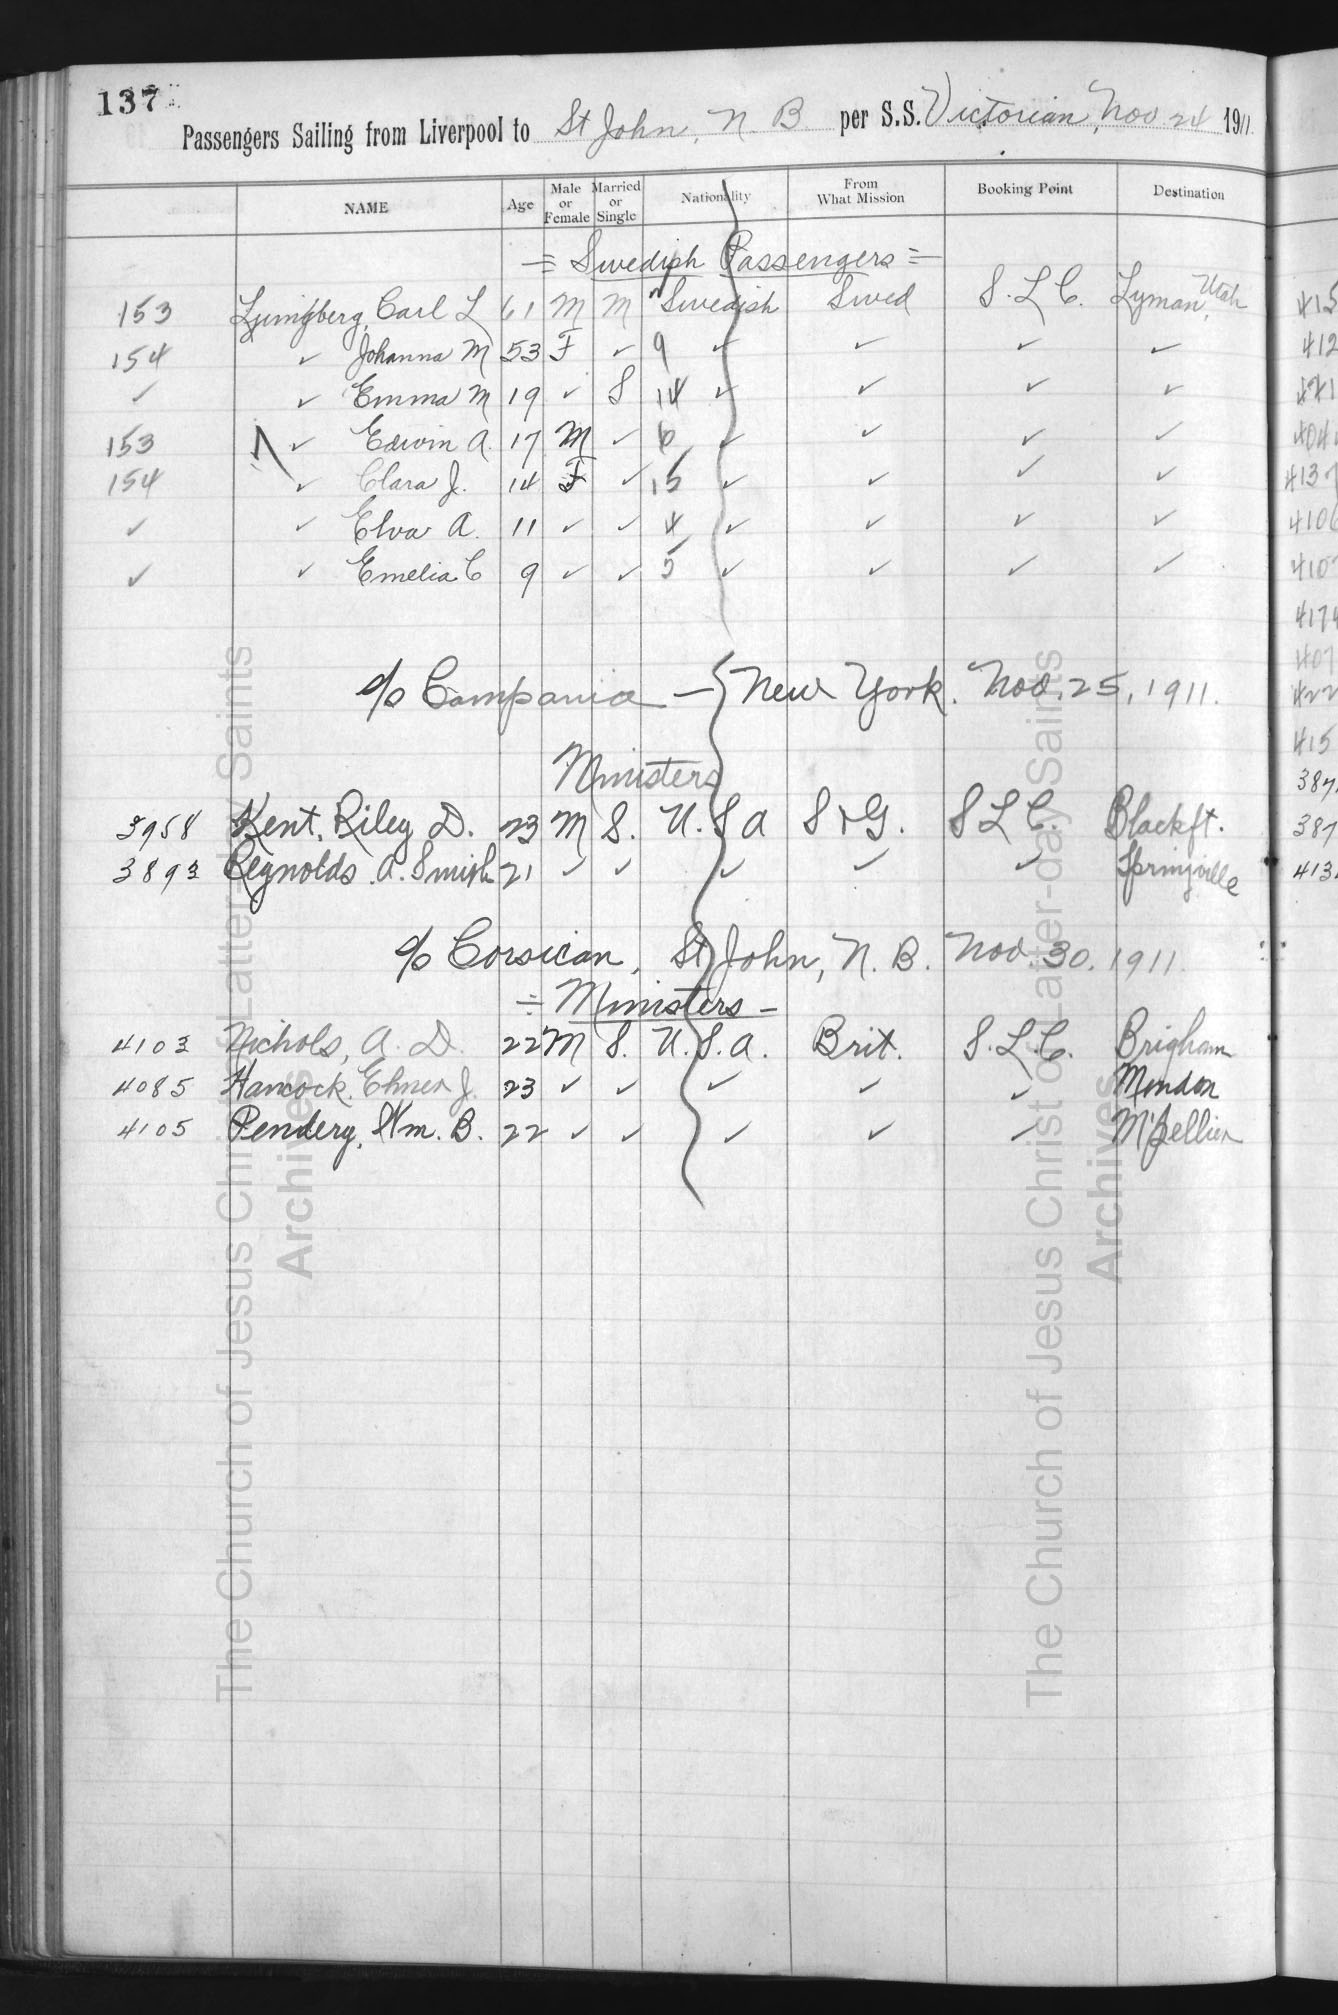 137
Passengers Sailing from Liverpool to St John, N. B. per S.S. Victorian, Nov 24 1911
NAME Age Male or Female Married or Single Nationality From What Mission Booking Point Destination
= Swedish Passengers =
153 Ljungberg, Carl L 61 M M Swedish Swed S. L C. Lyman, Utah
154 ✓ Johanna M 53 F ✓ 9 ✓ ✓ ✓ ✓
✓ ✓ Emma M 19 ✓ S 14 ✓ ✓ ✓ ✓
153 ✓ Edwin A. 17 M ✓ 6 ✓ ✓ ✓ ✓
154 ✓ Clara J. 14 F ✓ 15 ✓ ✓ ✓ ✓
✓ ✓ Elva A. 11 ✓ ✓ 4 ✓ ✓ ✓ ✓
✓ ✓ Emelia C 9 ✓ ✓ 5 ✓ ✓ ✓ ✓
s/s Campania — New York. Nov. 25, 1911.
Ministers
3958 Kent, Riley D. 23 M S. U. S A S & G. S L C. Blackft.
3893 Reynolds A. Smith 21 ✓ ✓ ✓ ✓ ✓ Springville
s/s Corsican, St John, N. B. Nov. 30. 1911
= Ministers -
4103 Nichols, A. D. 22 M S. U. S. A. Brit. S. L. C. Brigham
4085 Hancock, Elmer J. 23 ✓ ✓ ✓ ✓ ✓ Mendon
4105 Pendery, Wm. B. 22 ✓ ✓ ✓ ✓ ✓ M'pellier
The Church of Jesus Christ of Latter-day Saints
Archives
The Church of Jesus Christ of Latter-day Saints
Archives